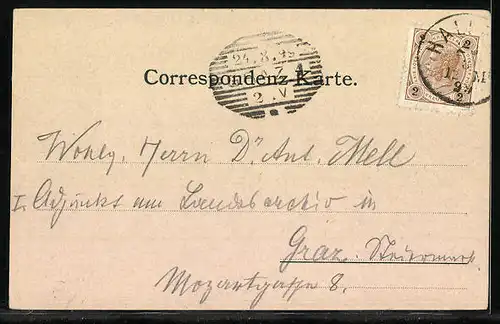 24. 3. 99
2 V
Correspondenz-Karte.
2 2
HALL
2 2
Wohlg. Herrn Dr Ant. Mell
I. Adjunkt am Landesarchiv in
Graz. Steiermark.
Mozartgasse 8.